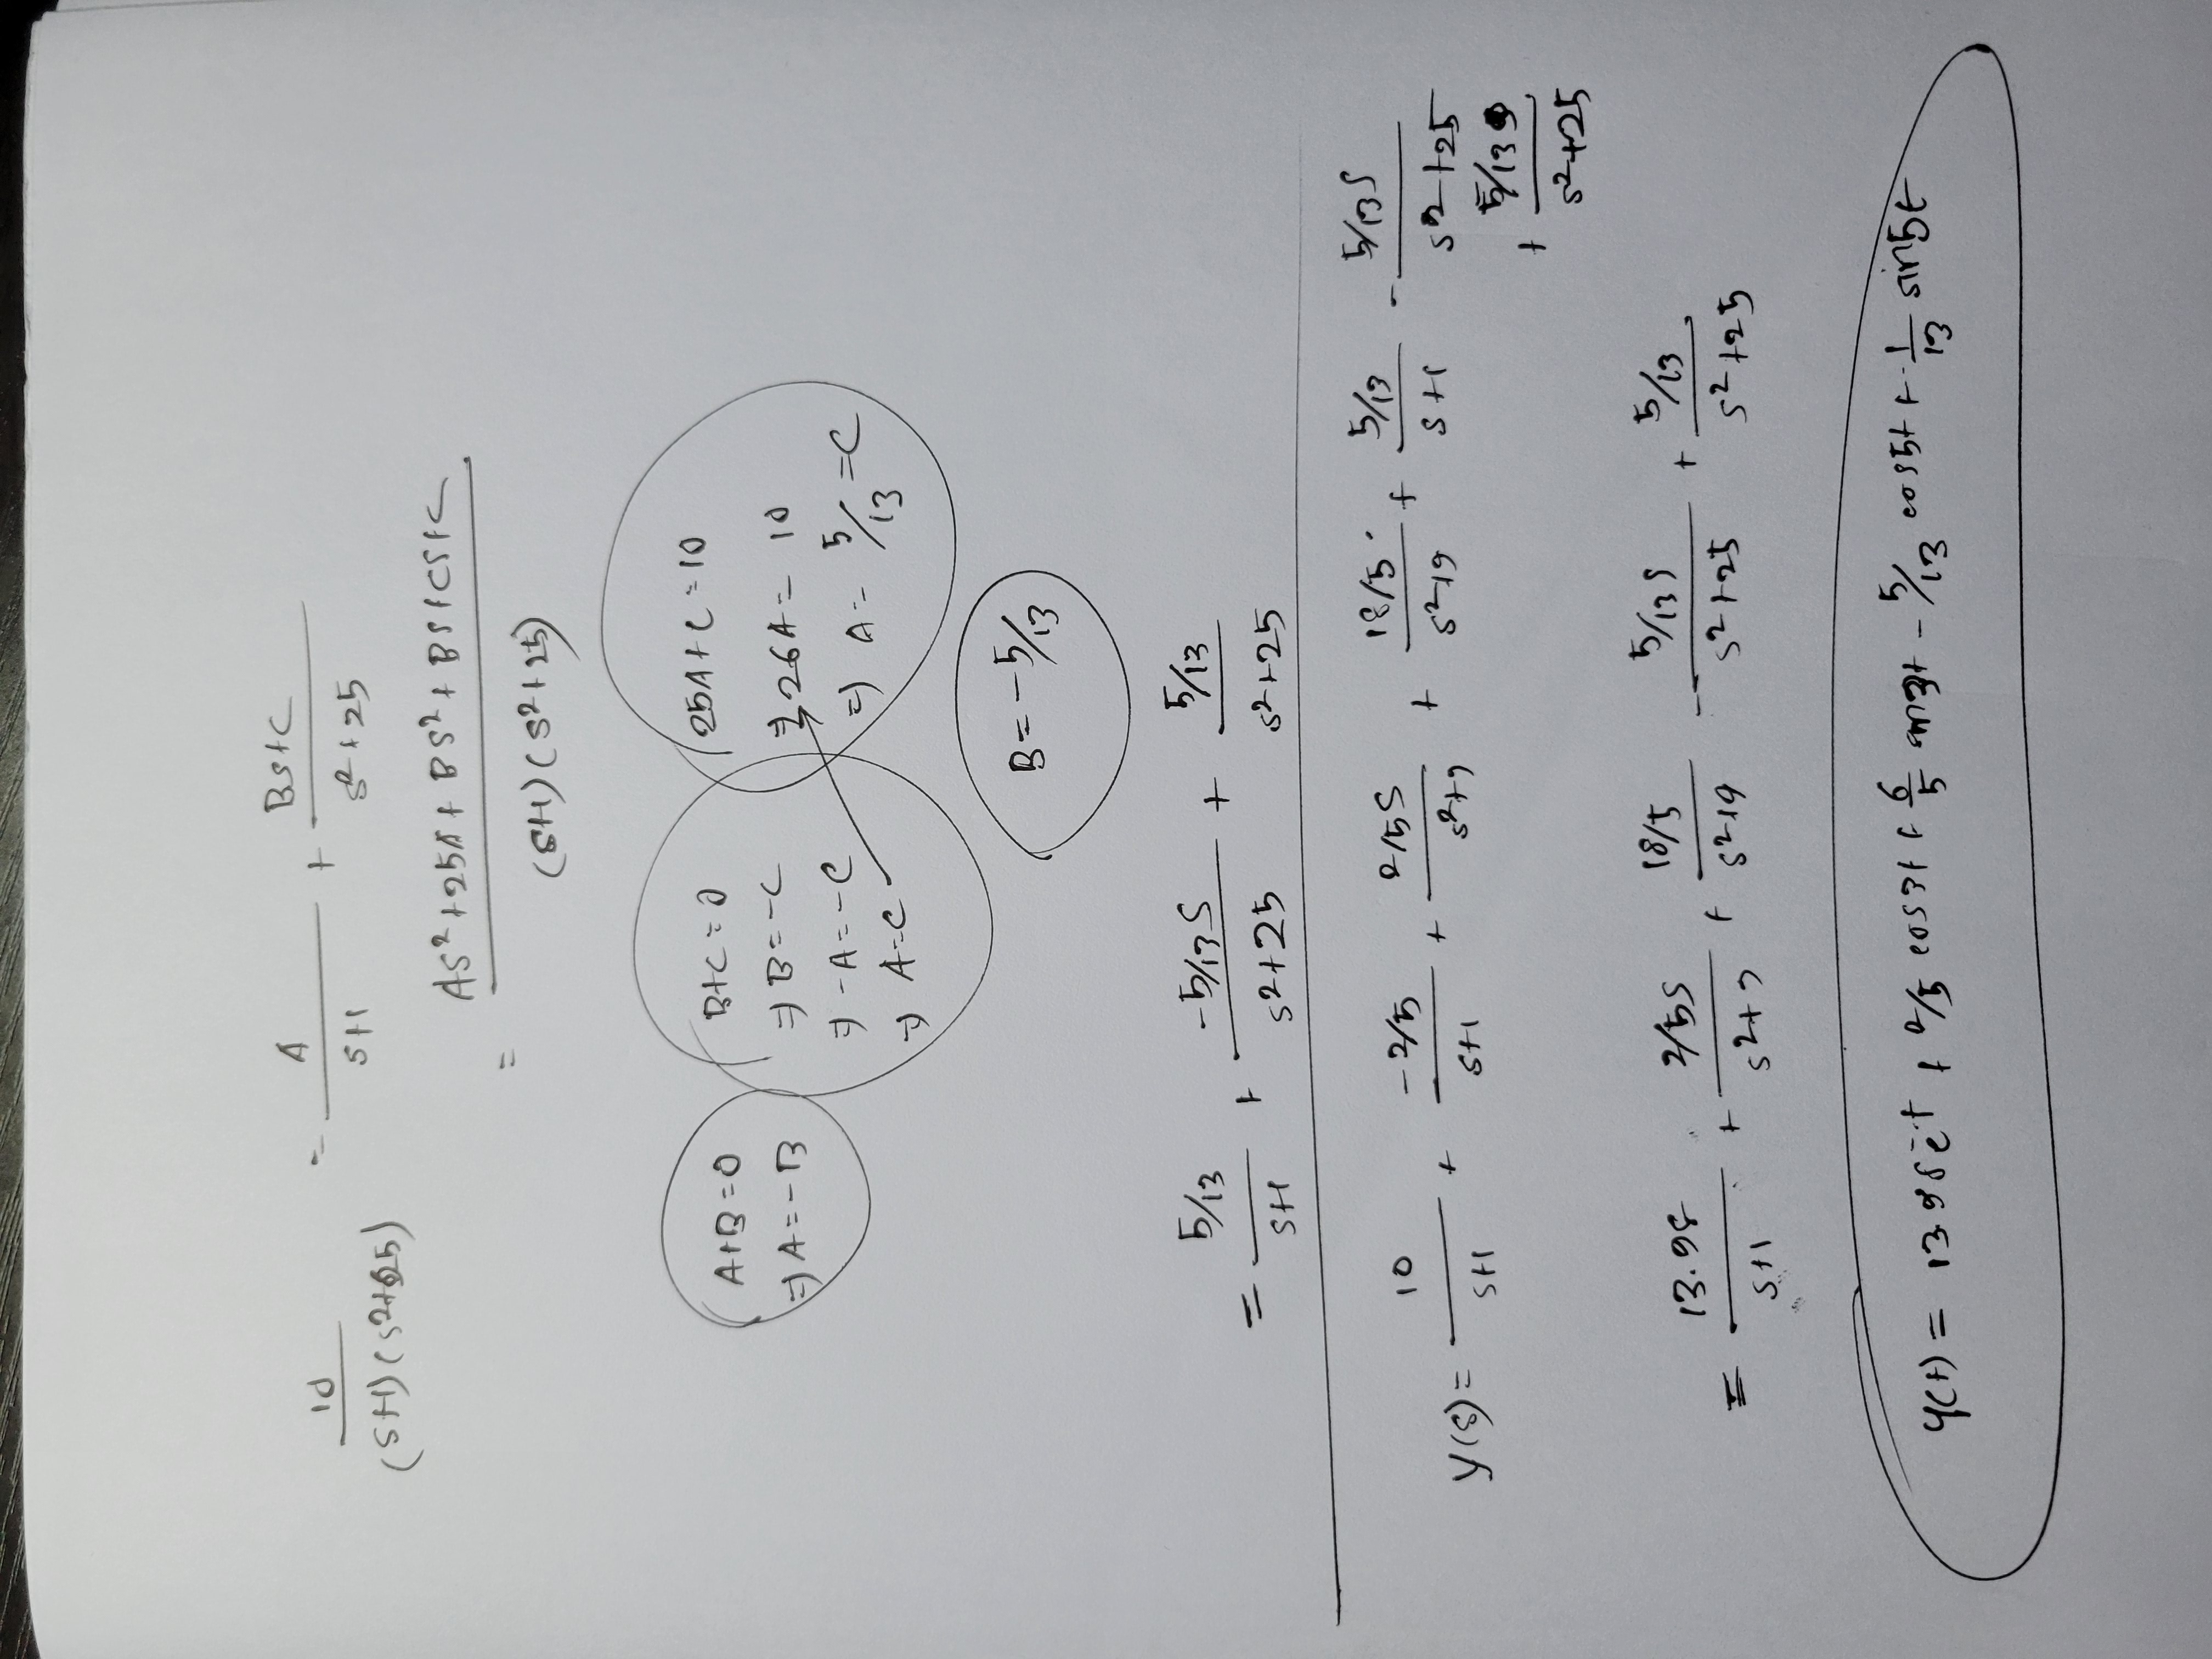 10/((s+1)(s²+25)) = A/(s+1) + (Bs+C)/(s²+25)
= (As²+25A+Bs²+Bs+Cs+C)/((s+1)(s²+25))
A+B=0
⇒ A=-B
B+C=0
⇒ B=-C
⇒ -A=-C
⇒ A=C
25A+C=10
⇒ 26A= 10
⇒ A= 5/13 =C
B= -5/13
= (5/13)/(s+1) + (-5/13 s)/(s²+25) + (5/13)/(s²+25)
y(s)= 10/(s+1) + (-2/5)/(s+1) + (2/5 s)/(s²+9) + (18/5)/(s²+9) + (5/13)/(s+1) - (5/13 s)/(s²+25)
+ (5/13)/(s²+25)
= 13.98/(s+1) + (2/5 s)/(s²+9) + (18/5)/(s²+9) - (5/13 s)/(s²+25) + (5/13)/(s²+25)
y(t) = 13.98e^-t + 2/5 cos3t + 6/5 sin3t - 5/13 cos5t + 1/13 sin5t